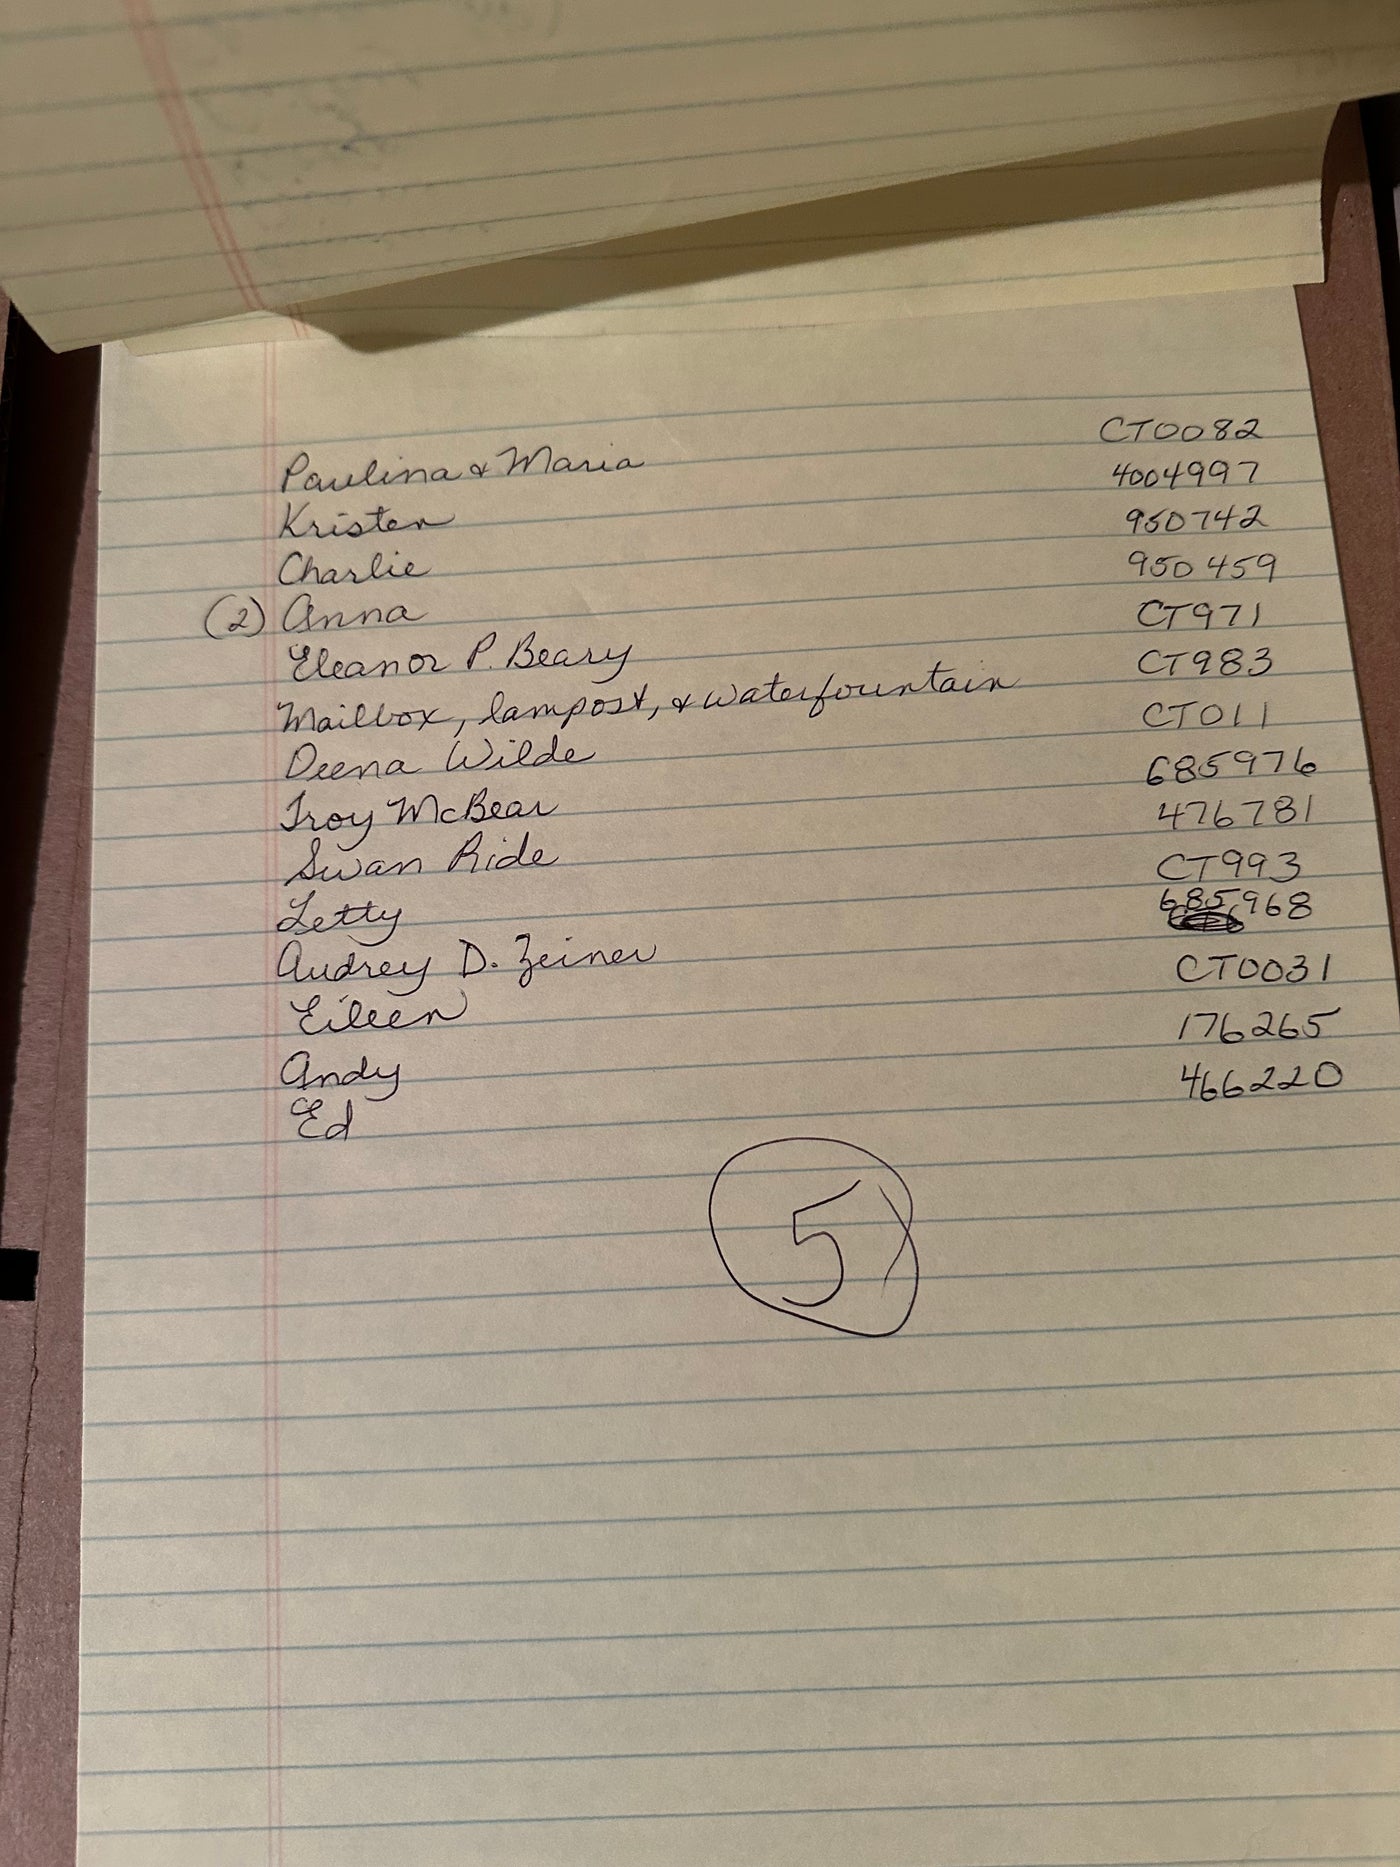 Paulina & Maria CT0082
Kristen 4004997
Charlie 950742
(2) Anna 950459
Eleanor P. Beary CT971
Mailbox, lampost, & waterfountain CT983
Deena Wilde CT011
Troy McBear 685976
Swan Ride 476781
Letty CT993
Audrey D. Zeiner 685968
Eileen CT0031
Andy 176265
Ed 466220
5